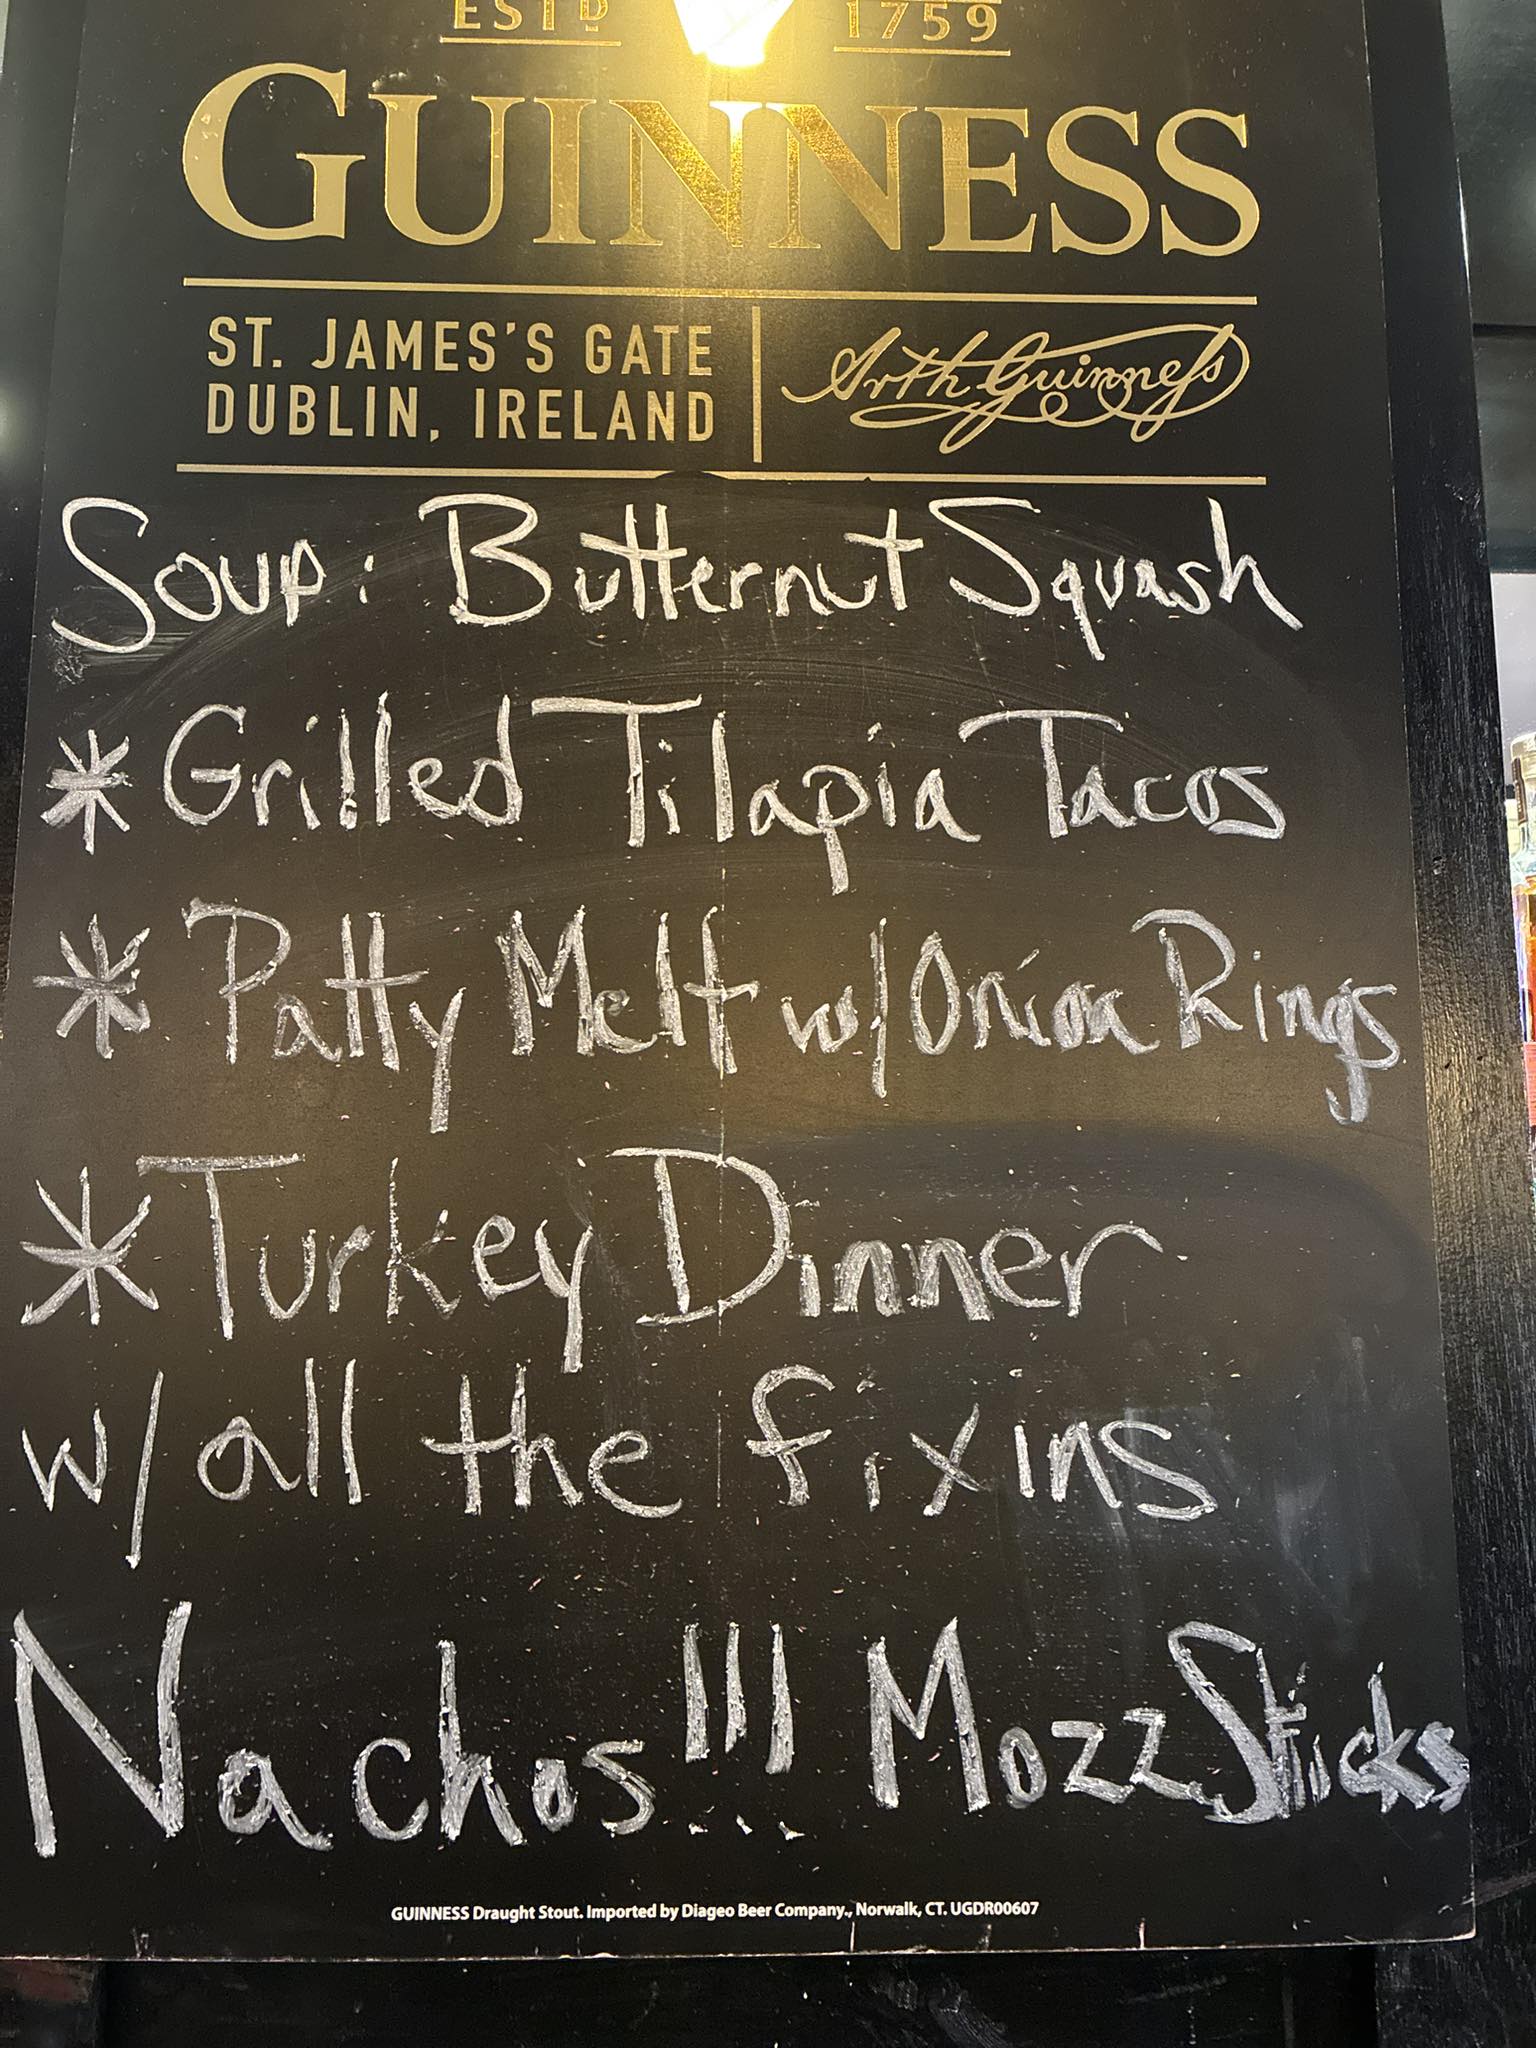 ESTD 1759
GUINNESS
ST. JAMES'S GATE
DUBLIN, IRELAND
Arth Guinness
Soup: Butternut Squash
* Grilled Tilapia Tacos
* Patty Melt w/ Onion Rings
* Turkey Dinner
w/ all the fixins
Nachos!!! Mozz Sticks
GUINNESS Draught Stout. Imported by Diageo Beer Company., Norwalk, CT. UGDR00607